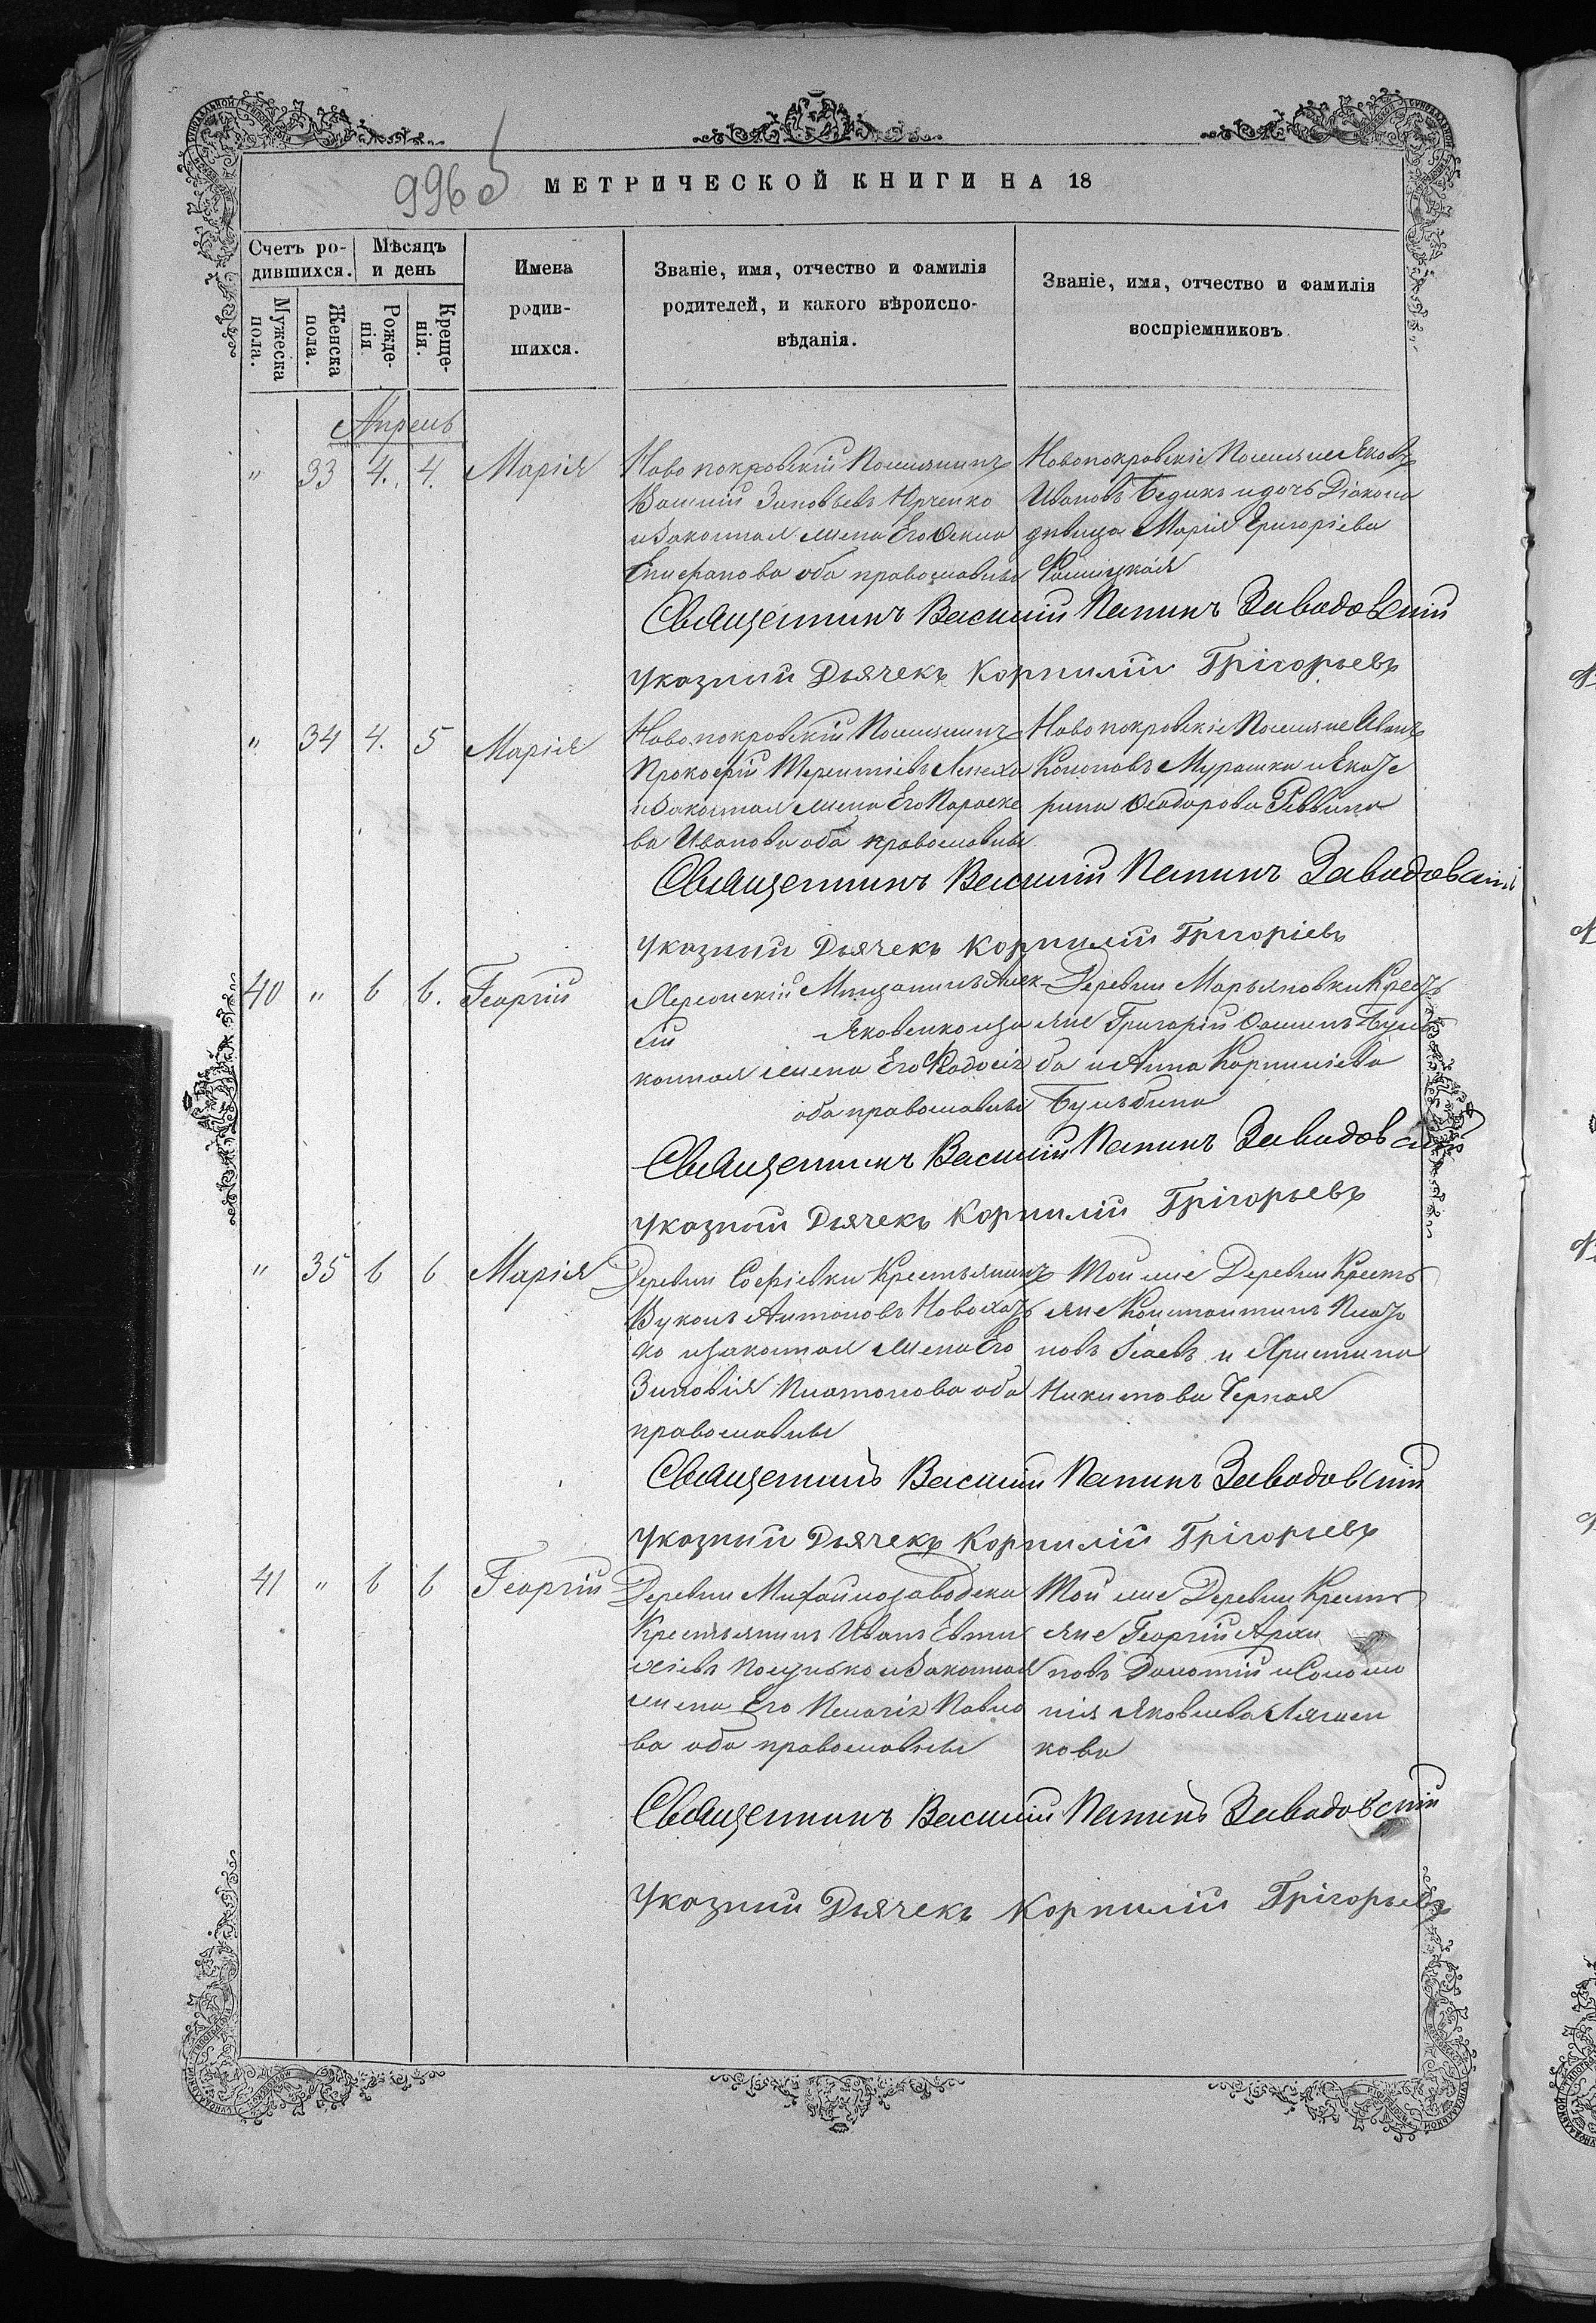 996 об
МЕТРИЧЕСКОЙ КНИГИ НА 18
Счетъ ро-
дившихся.
Мѣсяцъ
и день
Мужеска
пола.
Женска
пола.
Рожде-
нія
Креще-
нія.
Имена
родив-
шихся.
Званіе, имя, отчество и фамилія
родителей, и какого вѣроиспо-
вѣданія.
Званіе, имя, отчество и фамилія
воспріемниковъ
Апрель
" 33 4. 4. Марія
Новопокровскій Поселянинъ
Василій Зиновьевъ Юрченко
и Законная жена Его
Епифанова оба православные
Новопокровскіе Поселяне Яковъ
Ивановъ Бедикъ и дочь Діакона
девица Марія Григоріева
Священникъ Василій Папинъ Заводовскій
Указный Дьячекъ Корнилій Грігорьевъ
" 34 4. 5 Марія
Новопокровскій Поселянинъ
Прокофій Терентіевъ
и Законная жена Его Параске
ва Иванова оба православные
Новопокровскіе Поселяне Иванъ
Кононовъ Мурашка и Екате
рина Феодорова Реввина
Священникъ Василій Папинъ Заводовскій
Указный Дьячекъ Корнилій Грігоріевъ
40 " 6 6. Георгій
Херсонскій Мещанинъ Алек-
сій Яковенко и за
конная жена Его Феодосія
оба православные
Деревни Марьяновки Кресть
яне Григорій Фоминъ Буль
ба и Анна Корнилієва
Бульбина
Священникъ Василій Папинъ Заводовскій
Указный Дьячекъ Корнилій Грігорьевъ
" 35 6 6 Марія
Деревни Софіевки Крестьянинъ
Вуколъ Антоновъ Новохать
ко и законная жена Его
Зиновія Платонова оба
православные
Той же Деревни Кресть
яне Константинъ Плато
новъ Ісаевъ и Христина
Никитова Черная
Священникъ Василій Папинъ Заводовскій
Указный Дьячекъ Корнилій Грігорьевъ
41 " 6 6 Георгій
Деревни Михайлозаводска
Крестьянинъ Иванъ Евти
хіевъ и Законная
жена Его Пелагія Павло
ва оба православные
Той же Деревни Кресть
яне Георгій Архи
повъ и Соломо
нія Яковлева
кова
Священникъ Василій Папинъ Заводовскій
Указный Дьячекъ Корнилій Грігорьевъ